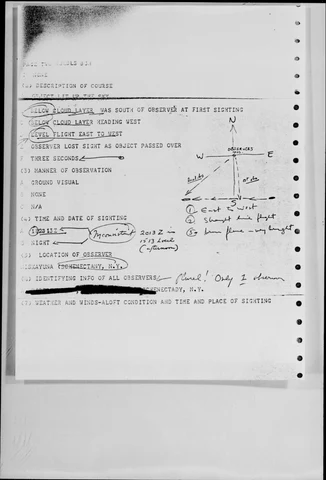 NONE
(2) DESCRIPTION OF COURSE
BELOW CLOUD LAYER WAS SOUTH OF OBSERVER AT FIRST SIGHTING
BELOW CLOUD LAYER HEADING WEST
LEVEL FLIGHT EAST TO WEST
OBSERVER LOST SIGHT AS OBJECT PASSED OVER
THREE SECONDS
(3) MANNER OF OBSERVATION
GROUND VISUAL
NONE
N/A
(4) TIME AND DATE OF SIGHTING
NIGHT
Inconsistent
2013 Z is
1513 local
(afternoon)
LOCATION OF OBSERVER
NISKAYUNA (SCHENECTADY, N.Y.
IDENTIFYING INFO OF ALL OBSERVERS
plural! Only 1 observer
SCHENECTADY, N.Y.
WEATHER AND WINDS-ALOFT CONDITION AND TIME AND PLACE OF SIGHTING
N
W
OBSERVERS
E
S
① East to West
② Straight line flight